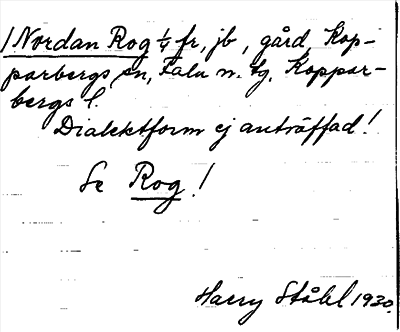 /Nordan Rog ¼ fr, jb, gård, Kop-
parbergs sn, Falu n. tg, Koppar-
bergs l.
Dialektform ej anträffad!
Se Rog!
Harry Ståhl 1930.